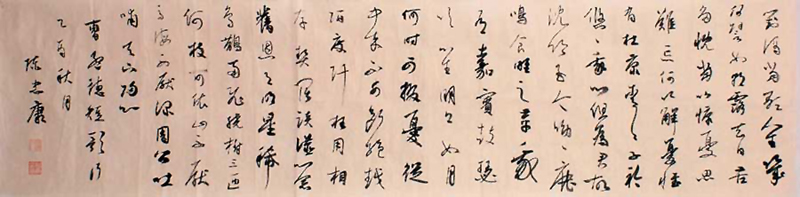 對酒當歌人生幾
何譬如朝露去日苦
多慨當以慷憂思
難忘何以解憂惟
有杜康青青子衿
悠悠我心但為君故
沈吟至今呦呦鹿
鳴食野之苹我
有嘉賓鼓瑟
吹笙明明如月
何時可掇憂從
中來不可斷絕越
陌度阡枉用相
存契闊談讌心念
舊恩月明星稀
烏鵲南飛繞樹三匝
何枝可依山不厭
高海不厭深周公吐
哺天下歸心
曹孟德短歌行
乙酉秋月
陳忠康